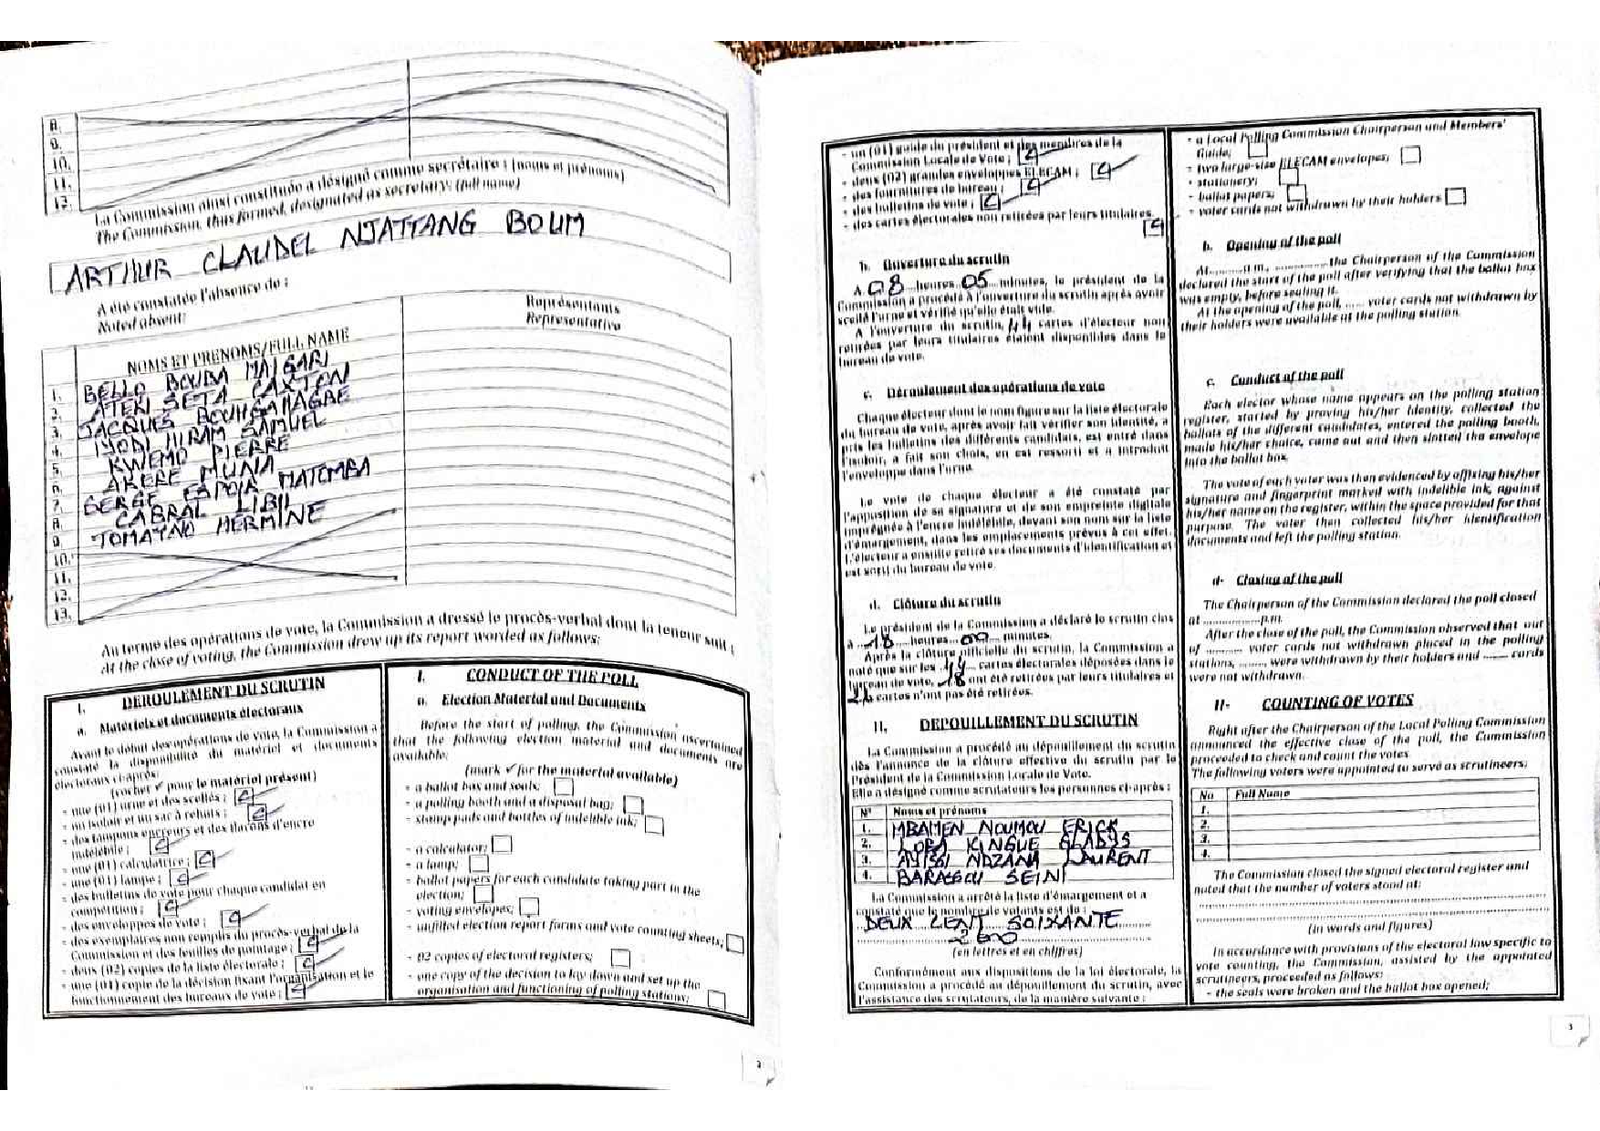 8.
9.
10.
11.
12.
La Commission ainsi constituée a désigné comme secrétaire : (noms et prénoms)
The Commission, thus formed, designated as secretary: (full name)
ARTHUR CLAUDEL NJATTANG BOUM
A été constatée l'absence de :
Noted absent:
NOMS ET PRENOMS/FULL NAME
Représentants
Representative
1. BELLO BOUBA MAIGARI
2. ATEKI SETA CAXTON
3. JACQUES BOUHGAHAGBE
4. IYODI HIRAM SAMUEL
5. KWEMO PIERRE
6. AKERE MUNA
7. SERGE ESPOIR MATOMBA
8. CABRAL LIBII
9. TOMAINO HERMINE
10.
11.
12.
13.
Au terme des opérations de vote, la Commission a dressé le procès-verbal dont la teneur suit :
At the close of voting, the Commission drew up its report worded as follows:
I. DEROULEMENT DU SCRUTIN
a. Matériels et documents électoraux
Avant le début des opérations de vote, la Commission a
constaté la disponibilité du matériel et documents
électoraux ci-après:
(cocher ✓ pour le matériel présent)
- une (01) urne et des scellés ;
- un isoloir et un sac à rebuts ;
- des tampons encreurs et des flacons d'encre
indélébile ;
- une (01) calculatrice ;
- une (01) lampe ;
- des bulletins de vote pour chaque candidat en
compétition ;
- des enveloppes de vote ;
- des exemplaires non remplis du procès-verbal de la
Commission et des feuilles de pointage ;
- deux (02) copies de la liste électorale ;
- une (01) copie de la décision fixant l'organisation et le
fonctionnement des bureaux de vote ;
I. CONDUCT OF THE POLL
a. Election Material and Documents
Before the start of polling, the Commission ascertained
that the following election material and documents are
available:
(mark ✓ for the material available)
- a ballot box and seals;
- a polling booth and a disposal bag;
- stamp pads and bottles of indelible ink;
- a calculator;
- a lamp;
- ballot papers for each candidate taking part in the
election;
- voting envelopes;
- unfilled election report forms and vote counting sheets;
- 02 copies of electoral registers;
- one copy of the decision to lay down and set up the
organisation and functioning of polling stations;
2
- un (01) guide du président et des membres de la
Commission Locale de Vote ;
- deux (02) grandes enveloppes ELECAM ;
- des fournitures de bureau ;
- des bulletins de vote ;
- des cartes électorales non retirées par leurs titulaires
b. Ouverture du scrutin
A 08 heures 05 minutes, le président de la
Commission a procédé à l'ouverture du scrutin après avoir
scellé l'urne et vérifié qu'elle était vide.
A l'ouverture du scrutin, 44 cartes d'électeur non
retirées par leurs titulaires étaient disponibles dans le
bureau de vote.
c. Déroulement des opérations de vote
Chaque électeur dont le nom figure sur la liste électorale
du bureau de vote, après avoir fait vérifier son identité, a
pris les bulletins des différents candidats, est entré dans
l'isoloir, a fait son choix, en est ressorti et a introduit
l'enveloppe dans l'urne.
Le vote de chaque électeur a été constaté par
l'apposition de sa signature et de son empreinte digitale
imprégnée à l'encre indélébile, devant son nom sur la liste
d'émargement, dans les emplacements prévus à cet effet.
L'électeur a ensuite retiré ses documents d'identification et
est sorti du bureau de vote.
d. Clôture du scrutin
Le président de la Commission a déclaré le scrutin clos
à 18 heures 00 minutes.
Après la clôture officielle du scrutin, la Commission a
noté que sur les 44 cartes électorales déposées dans le
bureau de vote, 18 ont été retirées par leurs titulaires et
cartes n'ont pas été retirées.
II. DEPOUILLEMENT DU SCRUTIN
La Commission a procédé au dépouillement du scrutin
dès l'annonce de la clôture effective du scrutin par le
Président de la Commission Locale de Vote.
Elle a désigné comme scrutateurs les personnes ci-après :
N° Noms et prénoms
1. MBAMEN NOUMOU ERICK
2. LOBA KINGUE GLADYS
3. AYISSI NDZANA LAURENT
4. BARASSOU SEINI
La Commission a arrêté la liste d'émargement et a
constaté que le nombre de votants est de :
DEUX CENT SOIXANTE
260
(en lettres et en chiffres)
Conformément aux dispositions de la loi électorale, la
Commission a procédé au dépouillement du scrutin, avec
l'assistance des scrutateurs, de la manière suivante :
- a Local Polling Commission Chairperson and Members'
Guide;
- two large-size ELECAM envelopes;
- stationery;
- ballot papers;
- voter cards not withdrawn by their holders
b. Opening of the poll
At.........a.m., ..............the Chairperson of the Commission
declared the start of the poll after verifying that the ballot box
was empty, before sealing it.
At the opening of the poll, ...... voter cards not withdrawn by
their holders were available at the polling station.
c. Conduct of the poll
Each elector whose name appears on the polling station
register, started by proving his/her identity, collected the
ballots of the different candidates, entered the polling booth,
made his/her choice, came out and then slotted the envelope
into the ballot box.
The vote of each voter was then evidenced by affixing his/her
signature and fingerprint marked with indelible ink, against
his/her name on the register, within the space provided for that
purpose. The voter then collected his/her identification
documents and left the polling station.
d- Closing of the poll
The Chairperson of the Commission declared the poll closed
at ................p.m.
After the close of the poll, the Commission observed that out
of .......... voter cards not withdrawn placed in the polling
stations, ........ were withdrawn by their holders and ....... cards
were not withdrawn.
II- COUNTING OF VOTES
Right after the Chairperson of the Local Polling Commission
announced the effective close of the poll, the Commission
proceeded to check and count the votes.
The following voters were appointed to serve as scrutineers:
No Full Name
1.
2.
3.
4.
The Commission closed the signed electoral register and
noted that the number of voters stood at:
(in words and figures)
In accordance with provisions of the electoral law specific to
vote counting, the Commission, assisted by the appointed
scrutineers, proceeded as follows:
- the seals were broken and the ballot box opened;
3